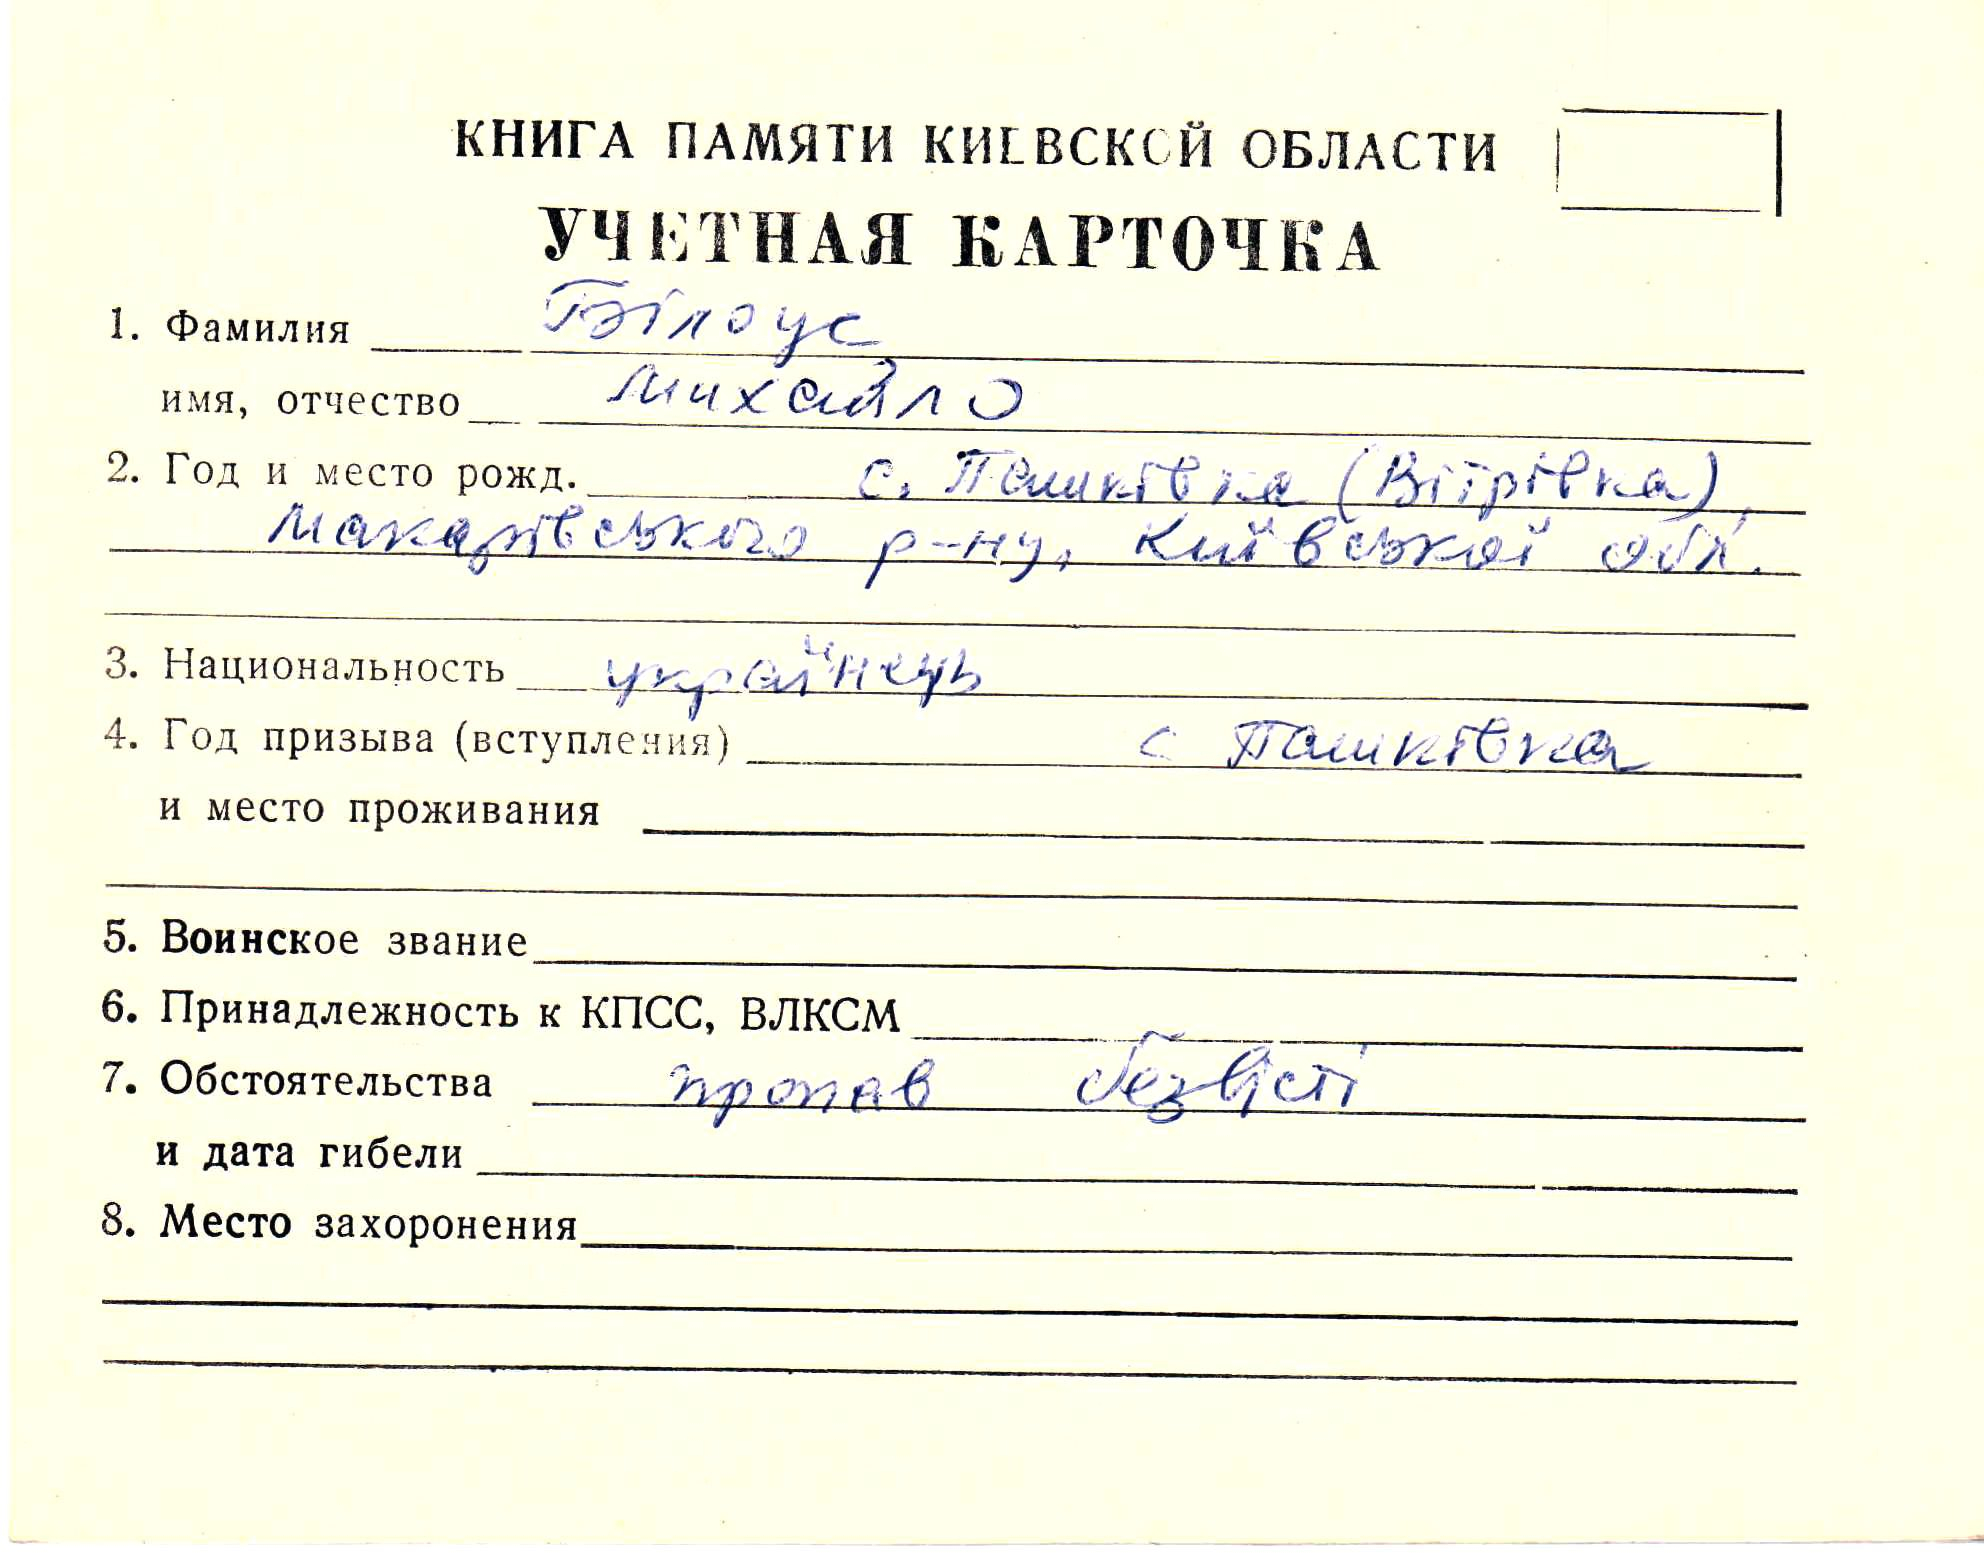 КНИГА ПАМЯТИ КИЕВСКОЙ ОБЛАСТИ
УЧЕТНАЯ КАРТОЧКА
1. Фамилия Білоус
имя, отчество Михайло
2. Год и место рожд. с. Пашківка (Вітрівка),
Макарівського р-ну, Київської обл.
3. Национальность українець
4. Год призыва (вступления) с Пашківка
и место проживания
5. Воинское звание
6. Принадлежность к КПСС, ВЛКСМ
7. Обстоятельства пропав безвісті
и дата гибели
8. Место захоронения